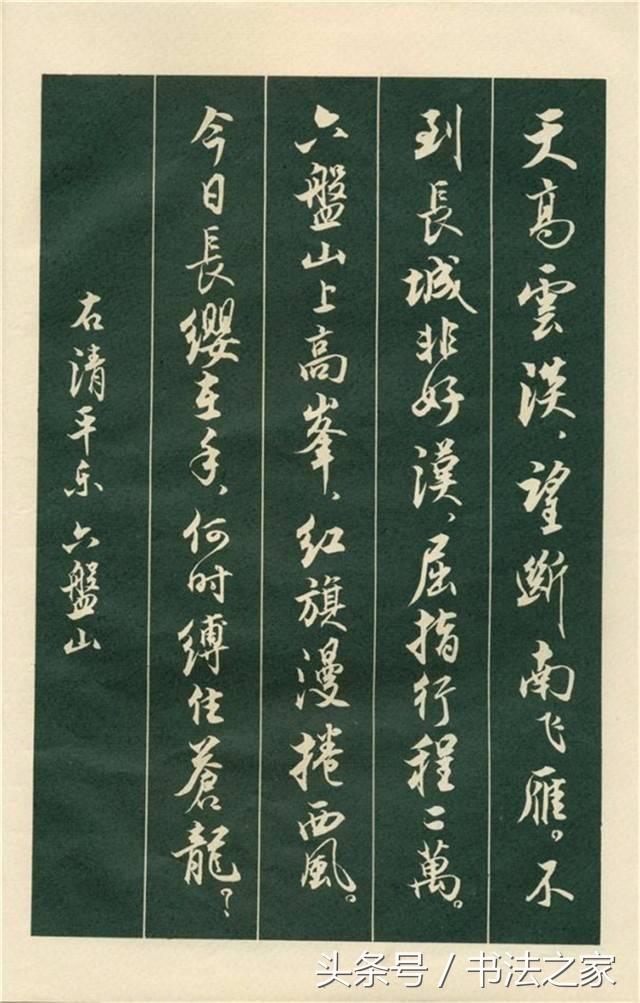 天高雲淡，望斷南飞雁。不
到長城非好漢，屈指行程二萬。
六盤山上高峯，红旗漫捲西風。
今日長缨在手，何时縛住蒼龍？
右清平乐 六盤山
头条号／书法之家